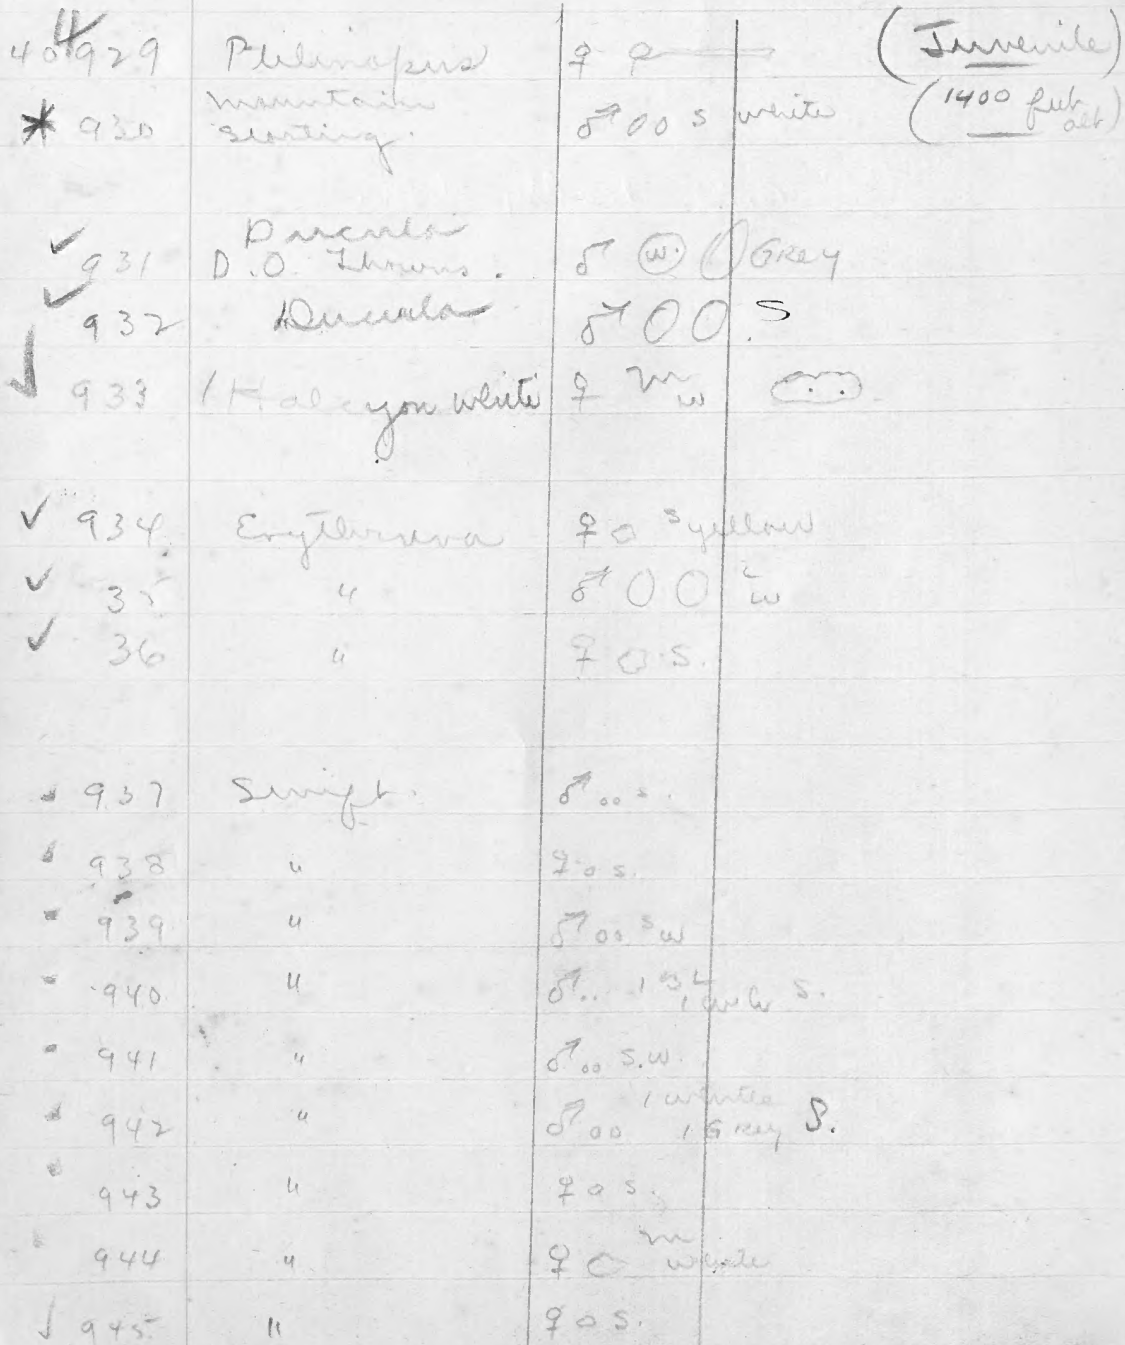 40929 Ptilinopus ♀ (Juvenile)
* 930 Mountain Starling. ♂ 00 S white (1400 feet alt)
✓ 931 Ducula D.O. Thorns. ♂ W. 0 Grey
✓ 932 Ducula ♂ 00 S.
✓ 933 1 Halcyon white ♀ m w
✓ 934 Erythrura ♀ o s yellow
✓ 35 " ♂ 00 w
✓ 36 " ♀ o s.
937 Swift. ♂ oo s.
938 " ♀ o s.
939 " ♂ oo s w
940 " ♂ .. 1 S.
941 " ♂ oo s.w.
942 " ♂ oo 1 white 1 Grey S.
943 " ♀ o s.
944 " ♀ o m white
✓ 945 " ♀ o s.